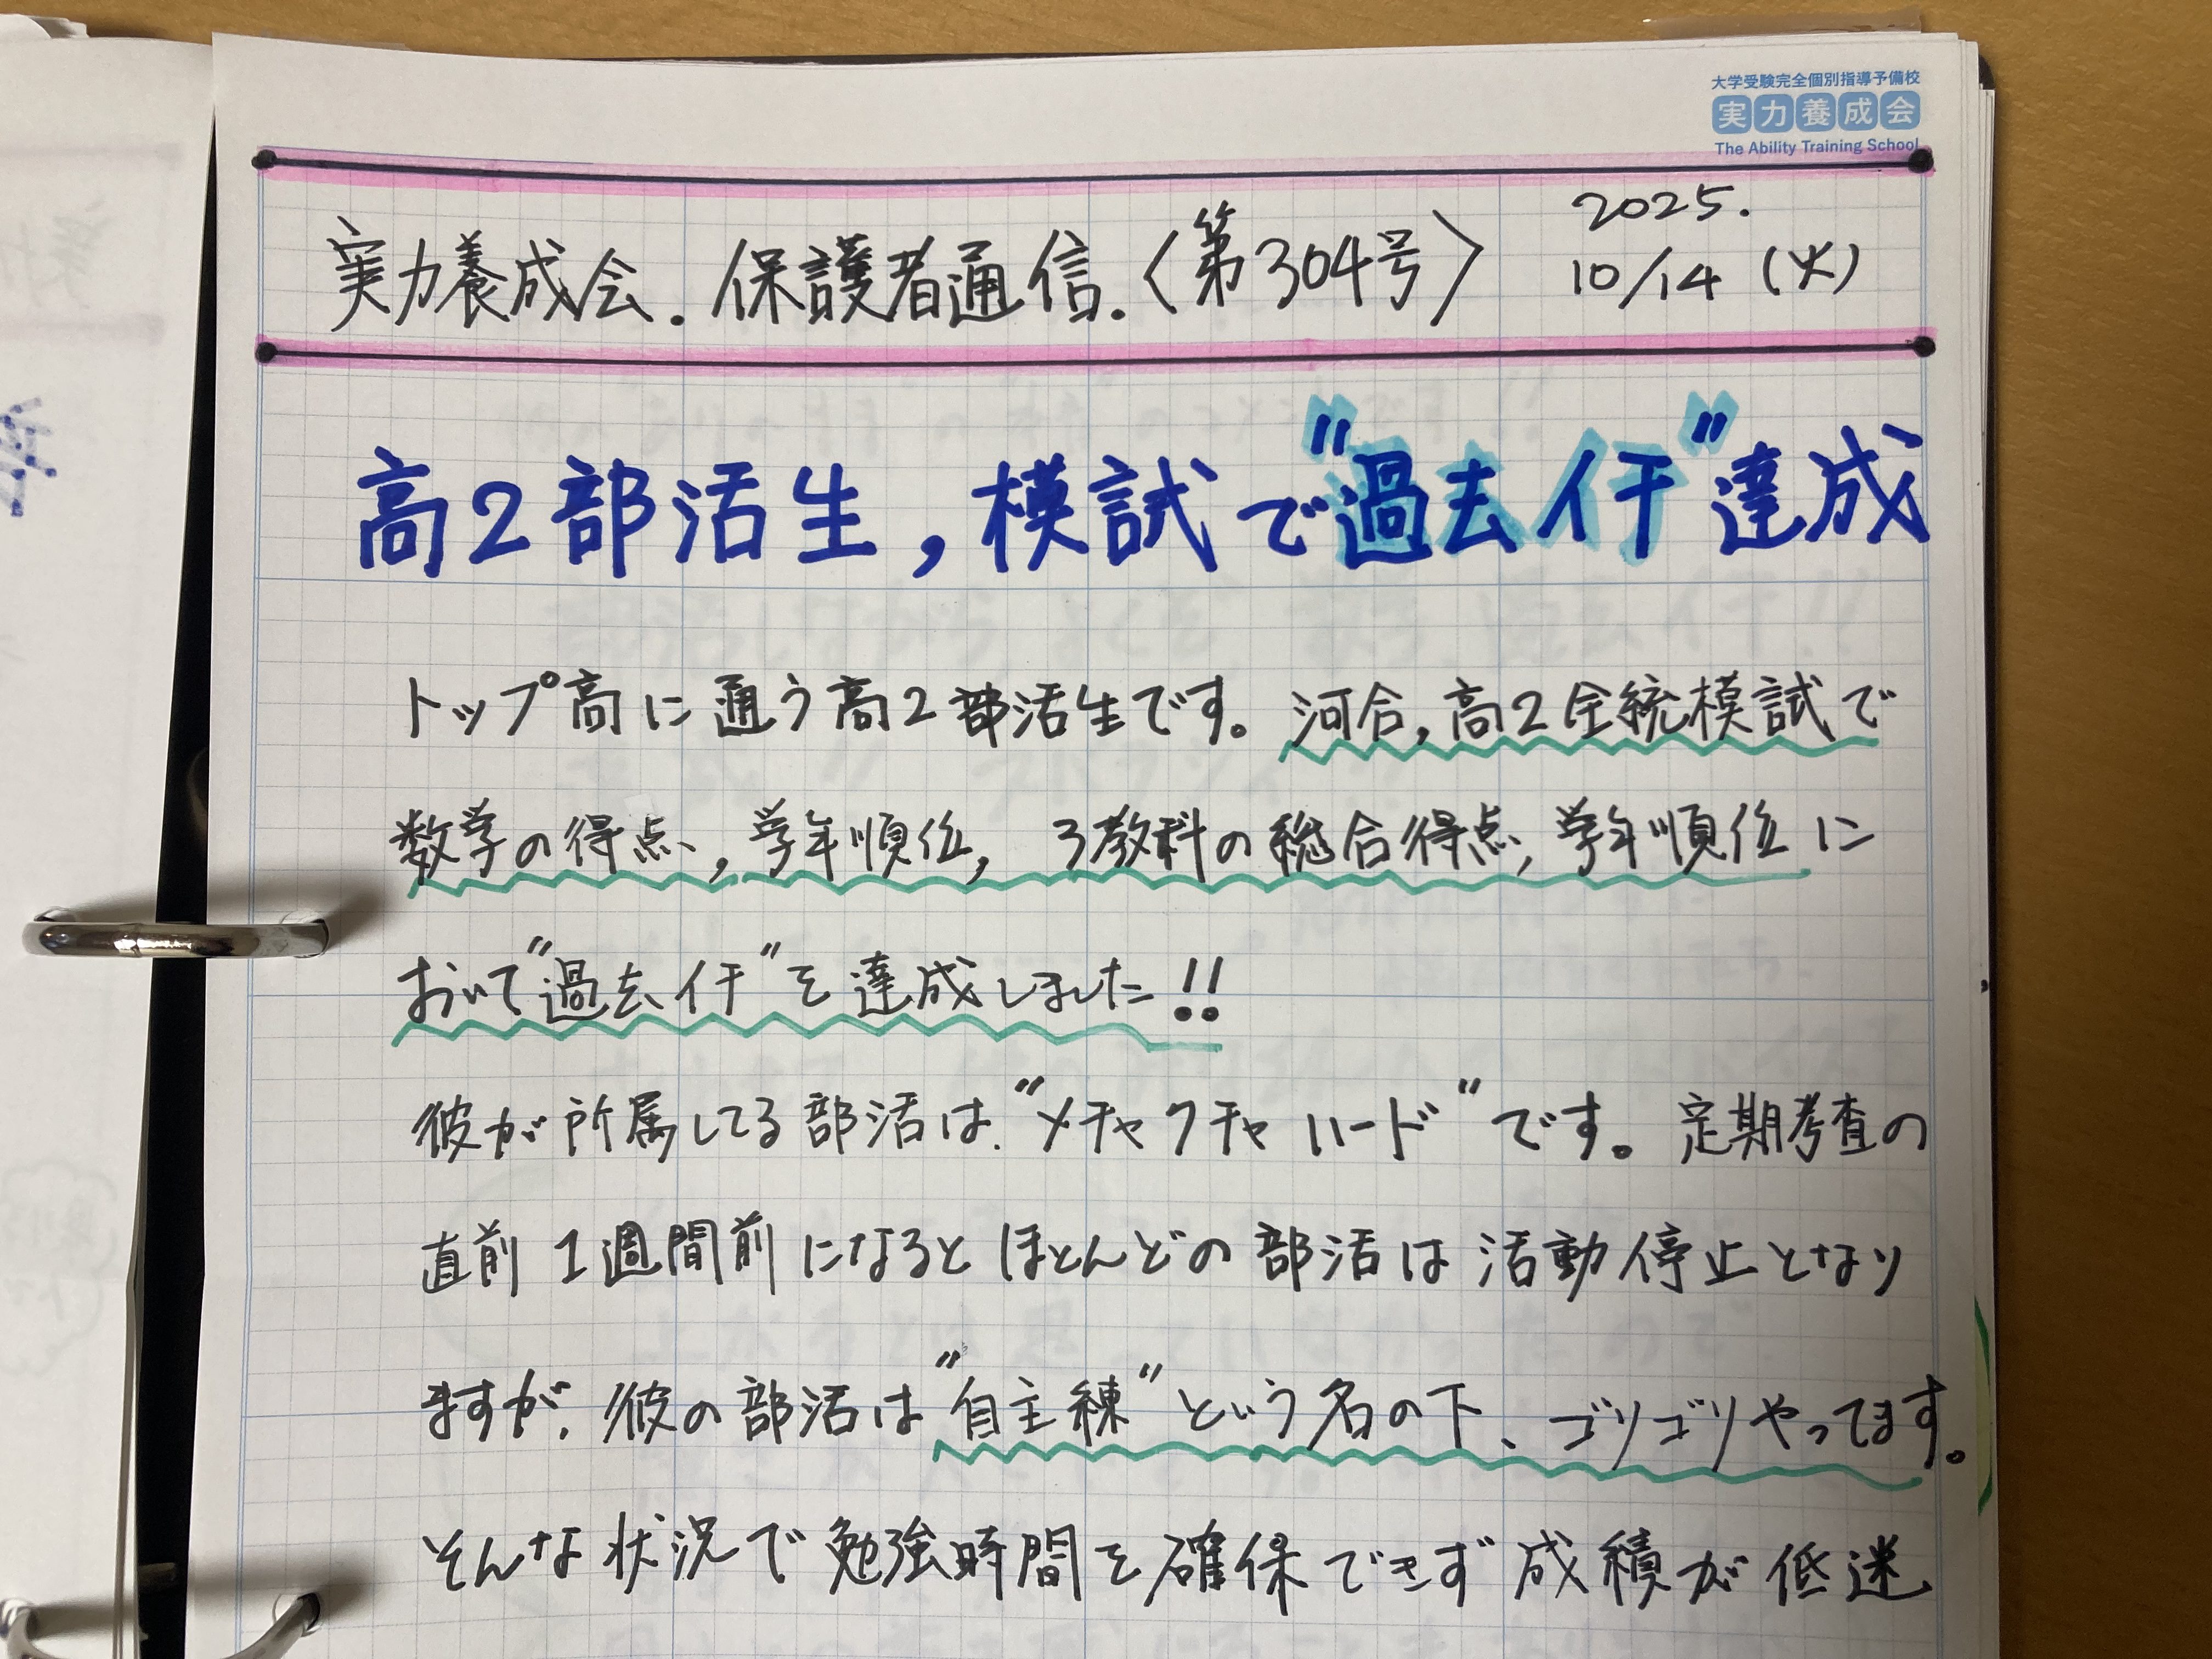 大学受験完全個別指導予備校
実力養成会
The Ability Training School
実力養成会.保護者通信.〈第304号〉
2025.
10/14(火)
高2部活生,模試で"過去イチ"達成
トップ高に通う高2部活生です。河合,高2全統模試で
数学の得点,学年順位,3教科の総合得点,学年順位に
おいて"過去イチ"を達成しました!!
彼が所属してる部活は、"メチャクチャハード"です。定期考査の
直前1週間前になるとほとんどの部活は活動停止となり
ますが、彼の部活は"自主練"という名の下、ゴリゴリやってます。
そんな状況で勉強時間を確保できず成績が低迷